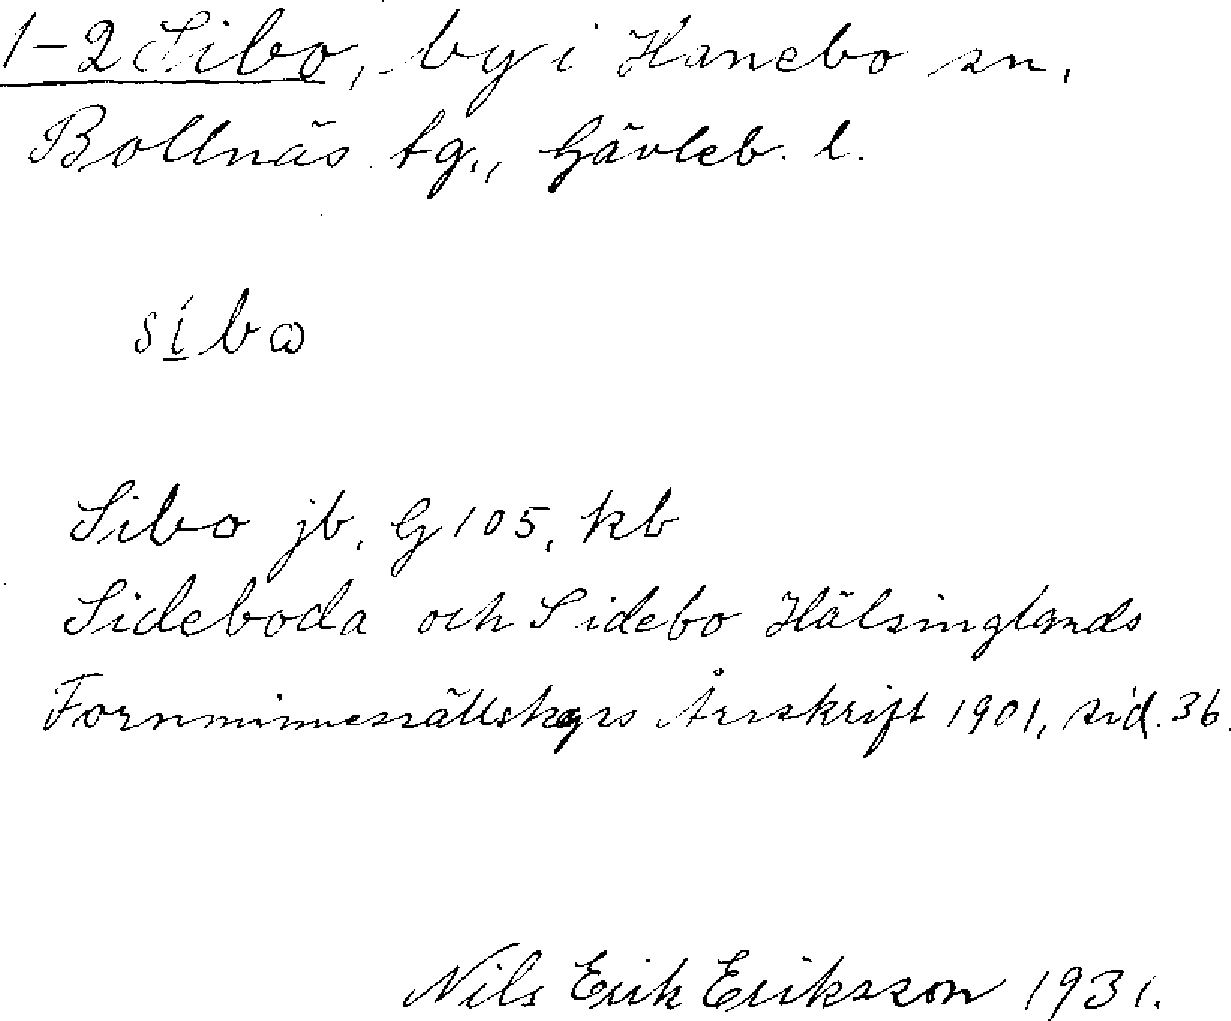 1-2 Sibo, by i Hanebo sn,
Bollnäs tg., Gävleb. l.
síbɷ
Sibo jb, G 105, kb
Sideboda och Sidebo Hälsinglands
Fornminnessällskaps Årsskrift 1901, sid. 36.
Nils Erik Eriksson 1931.